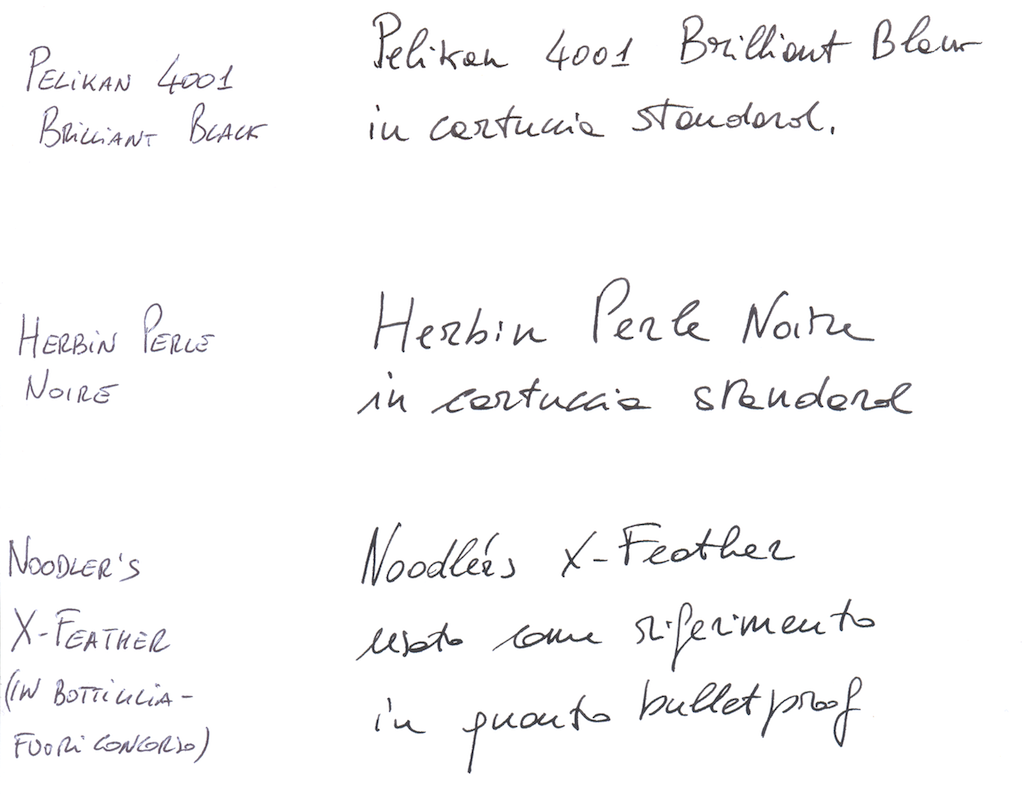 PELIKAN 4001
BRILLIANT BLACK
Pelikan 4001 Brilliant Black
in cartuccia standard.
HERBIN PERLE
NOIRE
Herbin Perle Noire
in cartuccia standard
NOODLER'S
X-FEATHER
(IN BOTTIGLIA-
FUORI CONCORSO)
Noodler's X-Feather
usato come riferimento
in quanto bulletproof